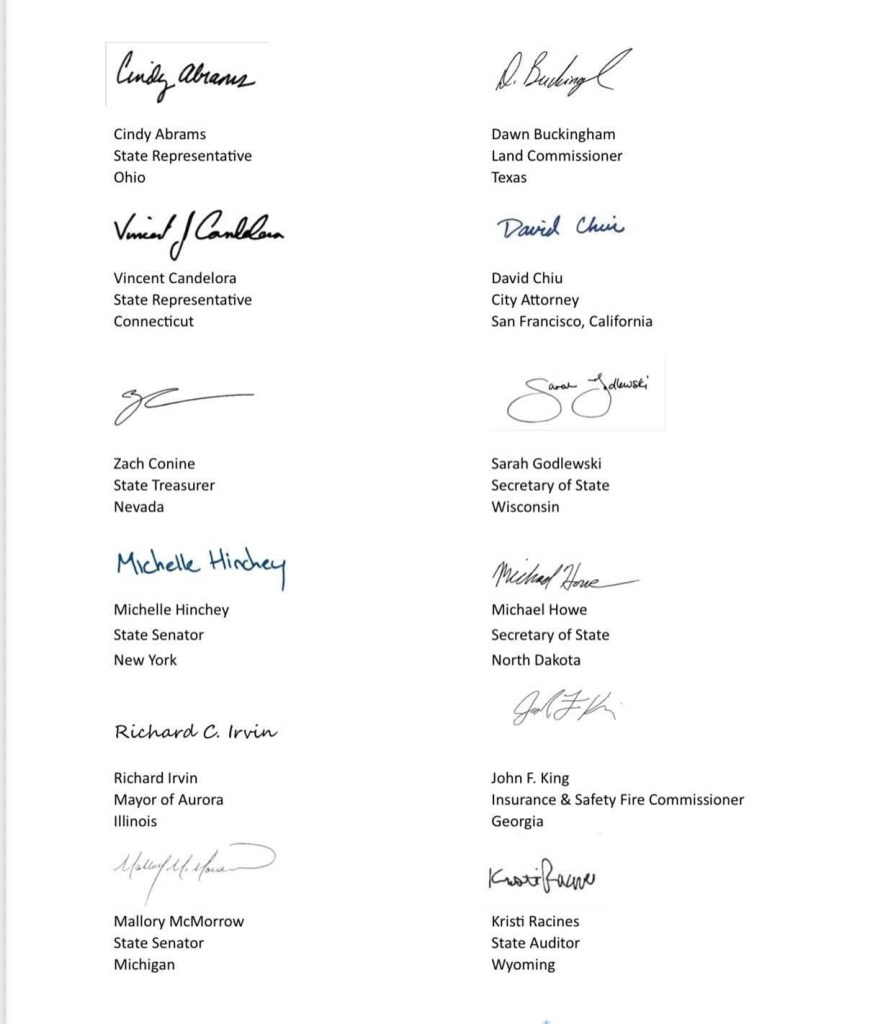 Cindy Abrams
D. Buckingl
Cindy Abrams
State Representative
Ohio
Dawn Buckingham
Land Commissioner
Texas
Vincent J Candelora
David Chiu
Vincent Candelora
State Representative
Connecticut
David Chiu
City Attorney
San Francisco, California
Sarah Godlewski
Zach Conine
State Treasurer
Nevada
Sarah Godlewski
Secretary of State
Wisconsin
Michelle Hinchey
Michael Howe
Michelle Hinchey
State Senator
New York
Michael Howe
Secretary of State
North Dakota
Richard C. Irvin
Richard Irvin
Mayor of Aurora
Illinois
John F. King
Insurance & Safety Fire Commissioner
Georgia
Mallory McMorrow
State Senator
Michigan
Kristi Racines
State Auditor
Wyoming